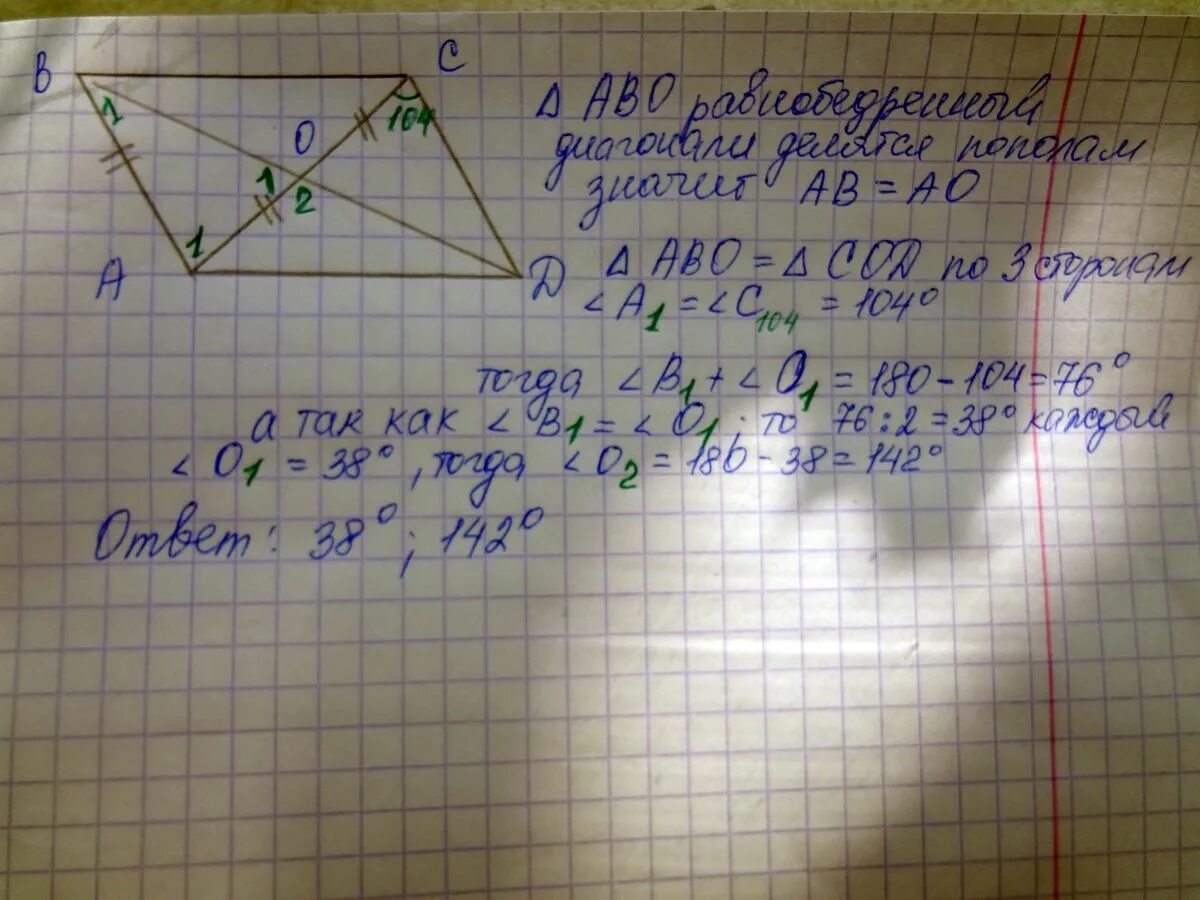 B
C
1
O
104
1
2
1
A
D
Δ ABO равнобедренный
диагонали делятся пополам
значит AB = AO
Δ ABO = Δ COD по 3 сторонам
∠A1 = ∠C104 = 104°
тогда ∠B1 + ∠O1 = 180 - 104 = 76°
а так как ∠B1 = ∠O1; то 76 : 2 = 38° каждый
∠O1 = 38°, тогда ∠O2 = 180 - 38 = 142°
Ответ: 38°; 142°